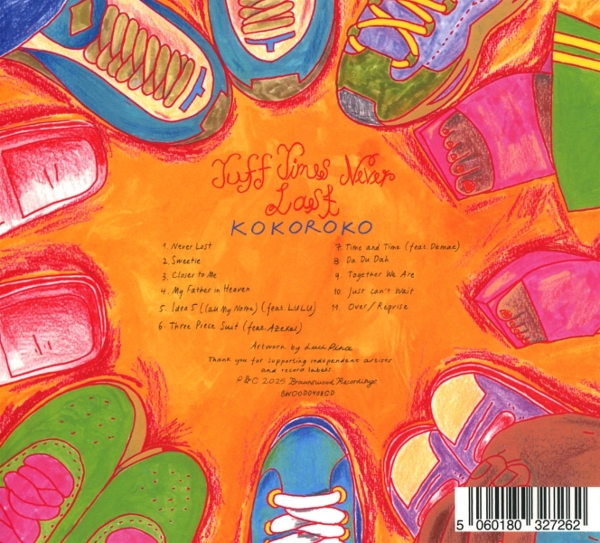 Tuff Times Never
Last
KOKOROKO
1. Never Lost
2. Sweetie
3. Closer to Me
4. My Father in Heaven
5. Idea 5 (Call My Name) (feat. LULU)
6. Three Piece Suit (feat. Azekel)
7. Time and Time (feat. Demae)
8. Da Du Dah
9. Together We Are
10. Just Can't Wait
11. Over / Reprise
Artwork by Luci Pina
Thank you for supporting independent artists
and record labels.
℗ & © 2025 Brownswood Recordings
BWOOD0408CD
5 060180 327262